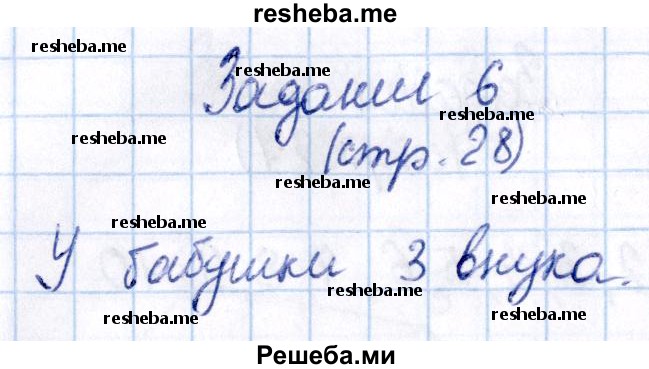 resheba.me
resheba.me
Задание 6
resheba.me
resheba.me
(стр. 28)
resheba.me
resheba.me
resheba.me
У бабушки 3 внука.
resheba.me
resheba.me
resheba.me
Решеба.ми